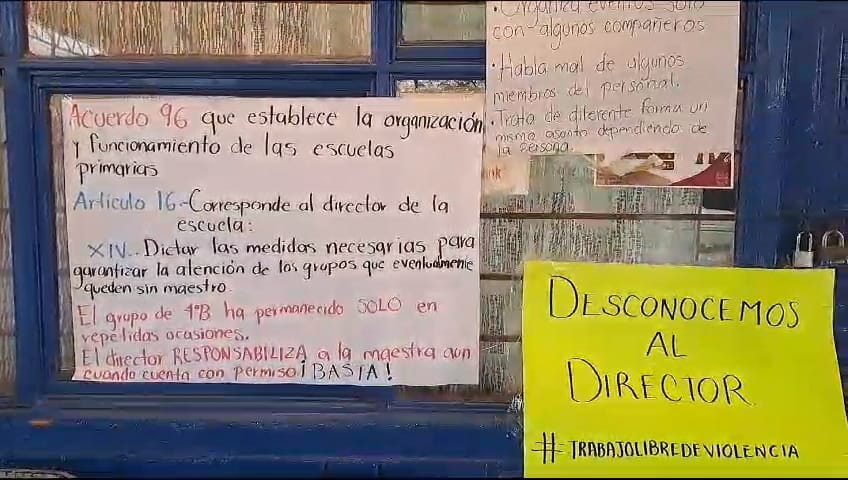 • Organiza eventos solo
con algunos compañeros
• Habla mal de algunos
miembros del personal.
• Trata de diferente forma un
mismo asunto dependiendo de
la persona.
Acuerdo 96 que establece la organización
y funcionamiento de las escuelas
primarias
Artículo 16.-Corresponde al director de la
escuela:
XIV.. Dictar las medidas necesarias para
garantizar la atención de los grupos que eventualmente
queden sin maestro.
El grupo de 4°B ha permanecido SOLO en
repetidas ocasiones.
El director RESPONSABILIZA a la maestra aun
cuando cuenta con permiso ¡BASTA!
DESCONOCEMOS
AL
DIRECTOR
#TRABAJOLIBREDEVIOLENCIA